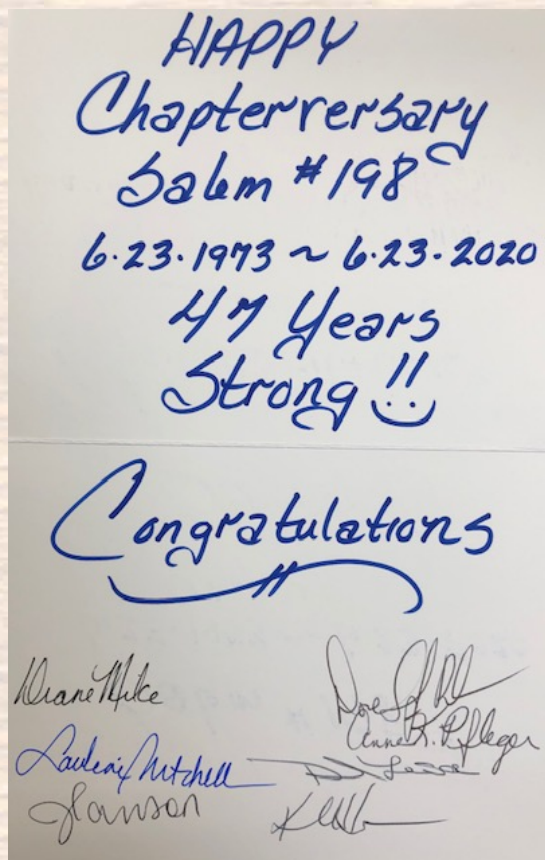 HAPPY
Chapterversary
Salem #198
6.23.1973 ~ 6.23.2020
47 Years
Strong !!
Congratulations
Diane Mike
Mitchell
Anne K. Pfleger
Hanson